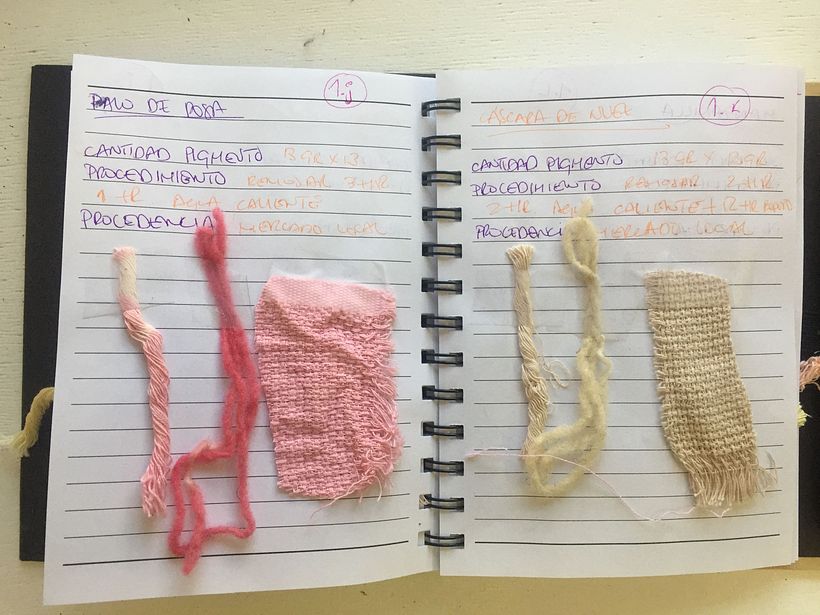 1-j
PALO DE ROSA
CANTIDAD PIGMENTO 13 GR X 13
PROCEDIMIENTO REMOJAR 3 HR
1 HR AGUA CALIENTE
PROCEDENCIA MERCADO LOCAL
1-K
CÁSCARA DE NUEZ
CANTIDAD PIGMENTO 13 GR X 13 GR
PROCEDIMIENTO REMOJAR 2 HR
2 HR AGUA CALIENTE + 12 HR
PROCEDENCI MERCADO LOCAL